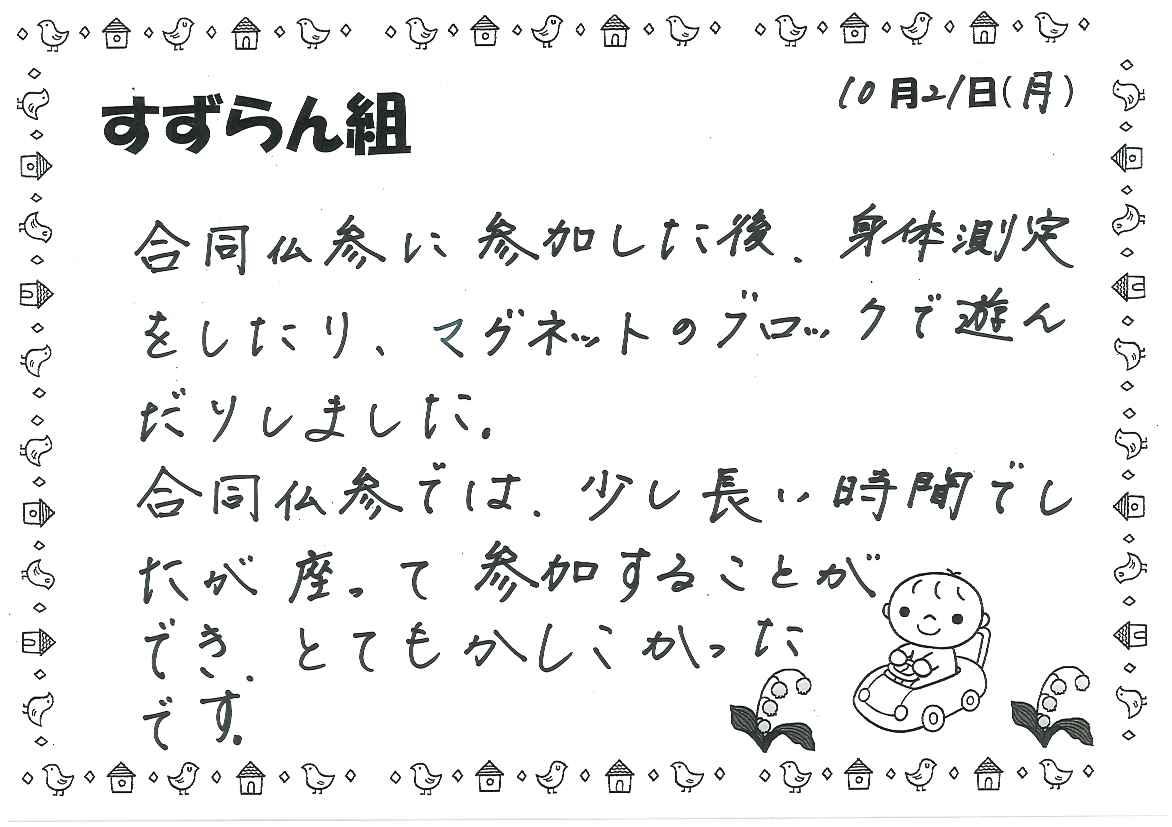 すずらん組
10月21日(月)
合同仏参に参加した後、身体測定
をしたり、マグネットのブロックで遊ん
だりしました。
合同仏参では、少し長い時間でし
たが座って参加することが
でき、とてもかしこかった
です。